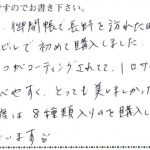 ですのでお書き下さい。
、御開帳で長野を訪れた時
ビルで初めて購入しました
つがコーティングされてて、1口サ
べやすく、とっても美味しかった
後は8種類入りのを購入し
います